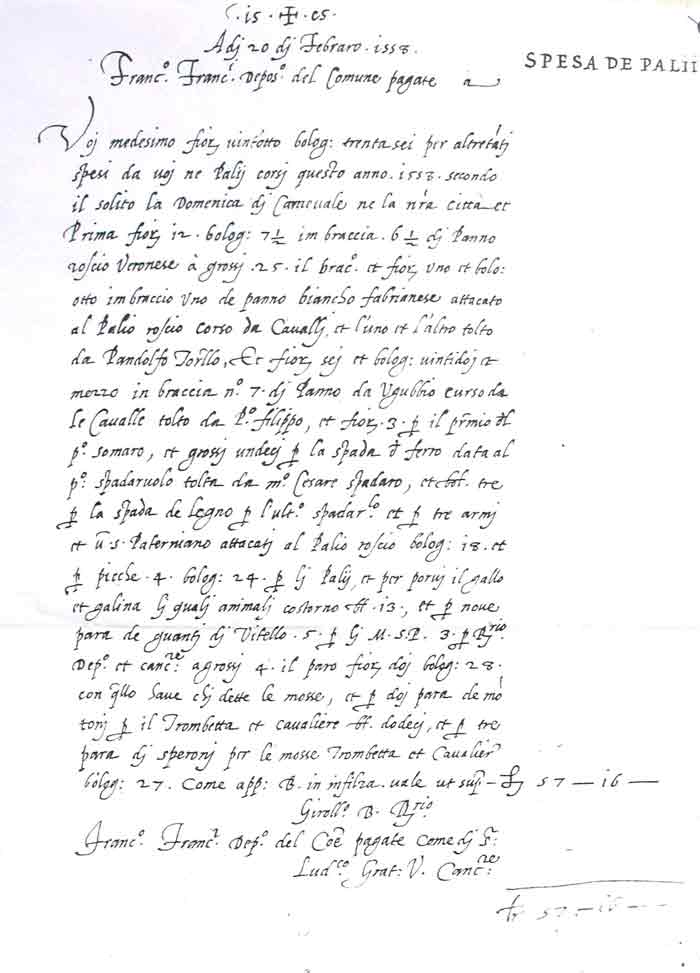 . is . ✠ . os .
Adj 20 dj Febraro . 1558 .
SPESA DE PALII
Franc.º Franc.ⁱ Depos.º del Comune pagate a
Voj medesimo fior. uintotto bolog: trenta sei per altretātj
spesi da uoj ne Palij corsj questo anno . 1558 . secondo
il solito la Domenica dj Carneuale ne la nr̄a città et
Prima fior. 12 . bolog: 7½ im braccia . 6½ dj Panno
roscio Veronese à grossj . 25 . il brac.º et fior. uno et bolo:
otto im braccio Vno de panno biancho fabrianese attacato
al Palio roscio corso da Cauallj, et l'uno et l'altro tolto
da Pandolfo, Et fior. sej et bolog: uintidoj et
mezzo in braccia n.º 7 . dj Panno da Vgubbio curso da
le Caualle tolto da P.º filippo, et fior. 3 . ꝑ il pr̄mio dl
p.º somaro, et grossj undecj ꝑ la spada d ferro data al
p.º spadaruolo tolta da m.º Cesare spadaro, et tre
ꝑ la spada de legno ꝑ l'ult.º spadar.ˡᵒ et ꝑ tre armj
et ū s . Paterniano attacatj al Palio roscio bolog: 18 . et
ꝑ picche . 4 . bolog: 24 . ꝑ lj Palij, et per poruj il gallo
et galina lj qualj animalj costorno . 13 ., et ꝑ noue
para de guantj dj Vitello . 5 . ꝑ lj M . S . P . 3 . ꝑ
Dep.º et canc.ʳᵉ a grossj 4 . il paro fior. doj bolog: 28 .
con q̄llo haue chj dette le mosse, et ꝑ doj para de mō
tonj ꝑ il Trombetta et caualiere dodecj, et ꝑ tre
para dj speronj per le mosse Trombetta et Caualier
bolog: 27 . Come app: B . in infilza . uale ut sup.ª – 57 — 16 —
Giroll.º B .
Franc.º Franc.ⁱ Dep.º del Coē pagate come dj s.ª:
Lud.ᶜᵒ Grat: V . Canc.ʳᵉ
57 — 16 —